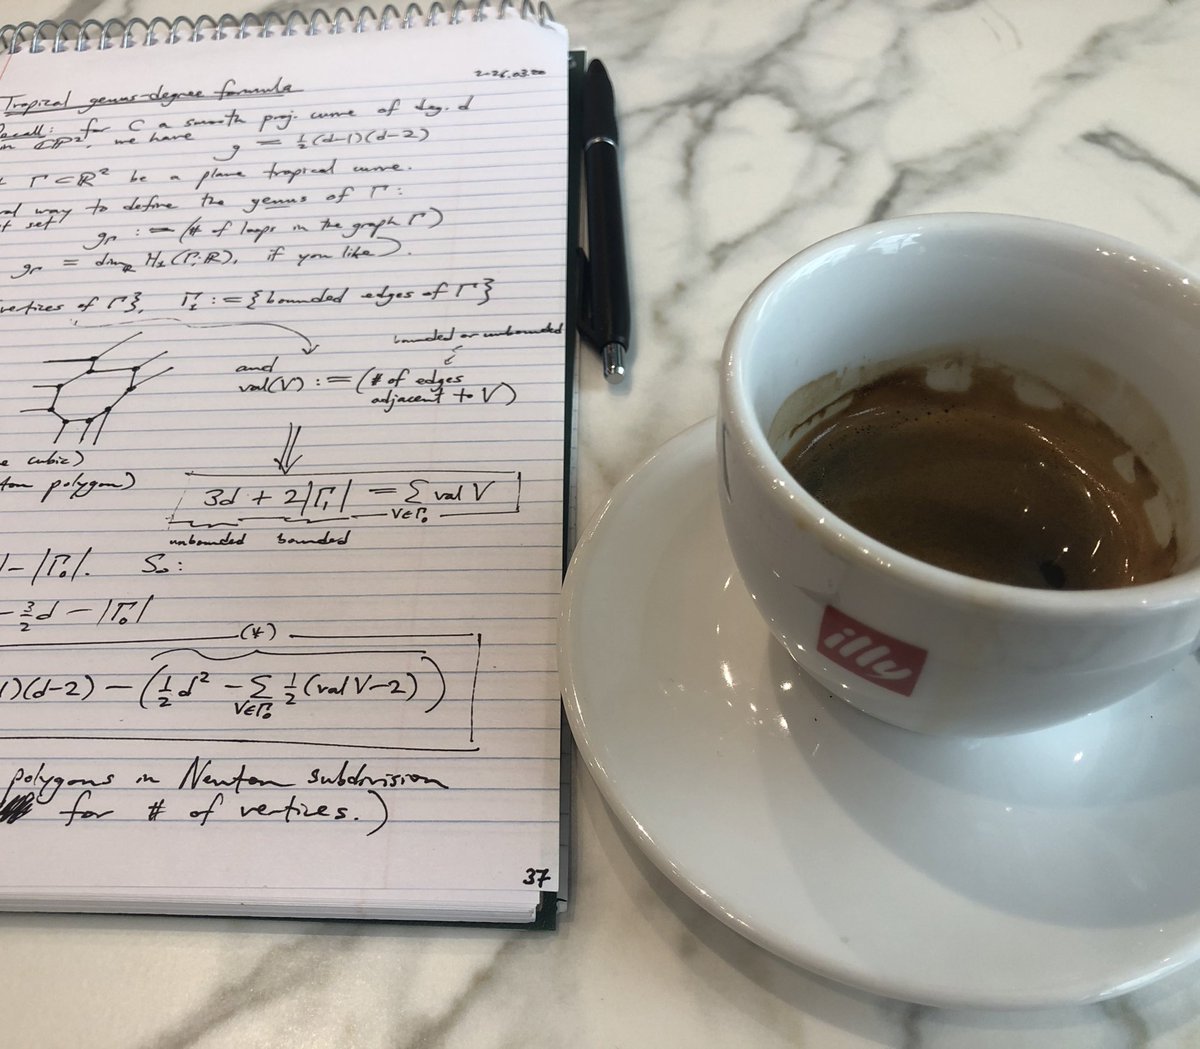 2026.03.20
Tropical genus-degree formula
Recall: for C a smooth proj. curve of deg. d
in ℂP², we have
g = ½(d-1)(d-2)
Γ⊂ℝ² be a plane tropical curve.
way to define the genus of Γ:
set
g_Γ := (# of loops in the graph Γ)
g_Γ = dim_ℝ H₁(Γ;ℝ), if you like).
vertices of Γ}, Γ₁ := {bounded edges of Γ}
bounded or unbounded
and
val(V) := (# of edges
adjacent to V)
cubic)
polygon)
3d + 2|Γ₁| = Σ_{V∈Γ₀} val V
unbounded bounded
- |Γ₀|. So:
- 3/2 d - |Γ₀|
(*)
1)(d-2) - (½d² - Σ_{V∈Γ₀} ½(val V-2))
polygons in Newton subdivision
for # of vertices.)
37
illy